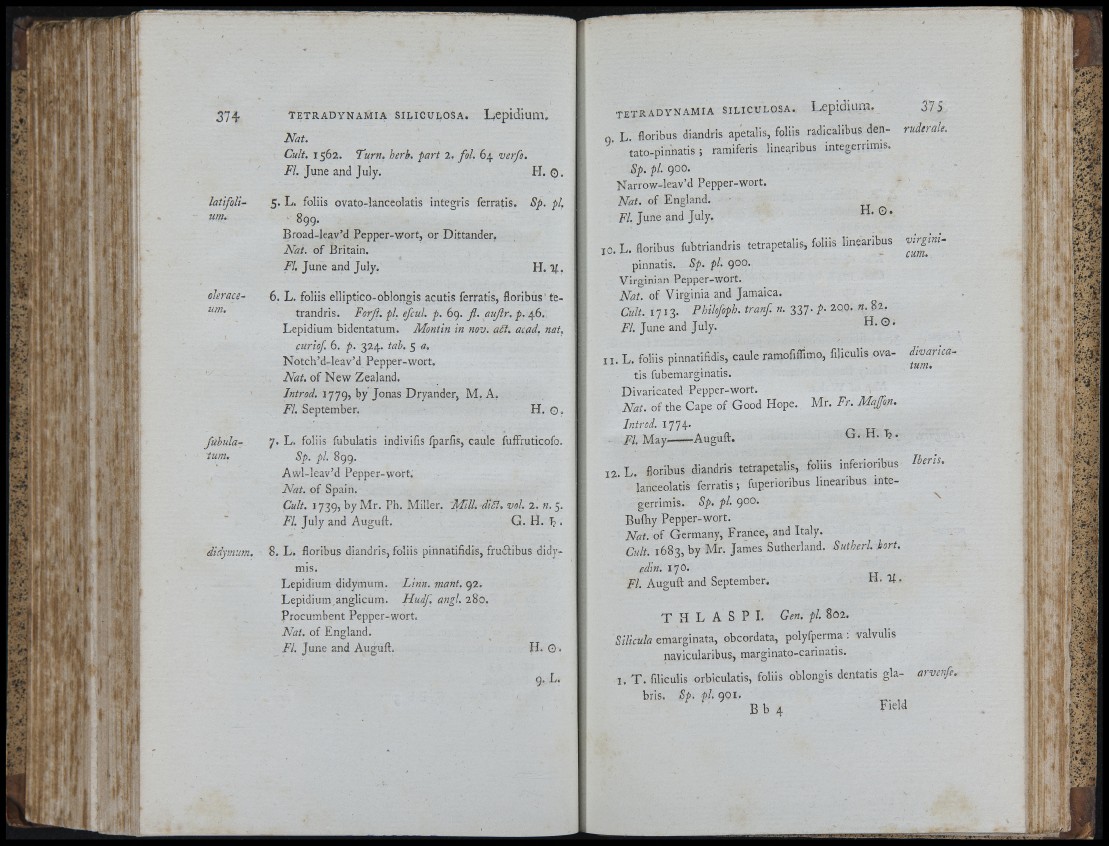 374 TETRADYNAMIA SILICULOSA. Lepidium.
Nat.
Cult. 1562. Turn. herb. part 2. fol. 64 verſo.
Fl. June and July. H. ☉.
latifoli- 5. L. foliis ovato-lanceolatis integris ſerratis. Sp. pl.
um. 899.
Broad-leav'd Pepper-wort, or Dittander.
Nat. of Britain.
Fl. June and July. H. ♃.
olerace- 6. L. foliis elliptico-oblongis acutis ſerratis, floribus te-
um. trandris. Forſt. pl. eſcul. p. 69. fl. auſtr. p. 46.
Lepidium bidentatum. Montin in nov. act. acad. nat.
curioſ. 6. p. 324. tab. 5 a.
Notch'd-leav'd Pepper-wort.
Nat. of New Zealand.
Introd. 1779, by Jonas Dryander, M. A.
Fl. September. H. ☉.
ſubula- 7. L. foliis ſubulatis indiviſis ſparſis, caule ſuffruticoſo.
tum. Sp. pl. 899.
Awl-leav'd Pepper-wort.
Nat. of Spain.
Cult. 1739, by Mr. Ph. Miller. Mill. dict. vol. 2. n. 5.
Fl. July and Auguſt. G. H. ♄.
didymum. 8. L. floribus diandris, foliis pinnatifidis, fructibus didy-
mis.
Lepidium didymum. Linn. mant. 92.
Lepidium anglicum. Hudſ. angl. 280.
Procumbent Pepper-wort.
Nat. of England.
Fl. June and Auguſt. H. ☉.
9. L.
TETRADYNAMIA SILICULOSA. Lepidium. 375
9. L. floribus diandris apetalis, foliis radicalibus den- ruderale.
tato-pinnatis; ramiferis linearibus integerrimis.
Sp. pl. 900.
Narrow-leav'd Pepper-wort.
Nat. of England.
Fl. June and July. H. ☉.
10. L. floribus ſubtriandris tetrapetalis, foliis linearibus virgini-
pinnatis. Sp. pl. 900. cum.
Virginian Pepper-wort.
Nat. of Virginia and Jamaica.
Cult. 1713. Philoſoph. tranſ. n. 337. p. 200. n. 82.
Fl. June and July. H. ☉.
11. L. foliis pinnatifidis, caule ramoſiſſimo, ſiliculis ova- divarica-
tis ſubemarginatis. tum.
Divaricated Pepper-wort.
Nat. of the Cape of Good Hope. Mr. Fr. Maſſon.
Introd. 1774.
Fl. May——Auguſt. G. H. ♄.
12. L. floribus diandris tetrapetalis, foliis inferioribus Iberis.
lanceolatis ſerratis; ſuperioribus linearibus inte-
gerrimis. Sp. pl. 900.
Buſhy Pepper-wort.
Nat. of Germany, France, and Italy.
Cult. 1683, by Mr. James Sutherland. Sutherl. hort.
edin. 170.
Fl. Auguſt and September. H. ♃.
THLASPI. Gen. pl. 802.
Silicula emarginata, obcordata, polyſperma: valvulis
navicularibus, marginato-carinatis.
1. T. ſiliculis orbiculatis, foliis oblongis dentatis gla- arvenſe.
bris. Sp. pl. 901.
B b 4 Field